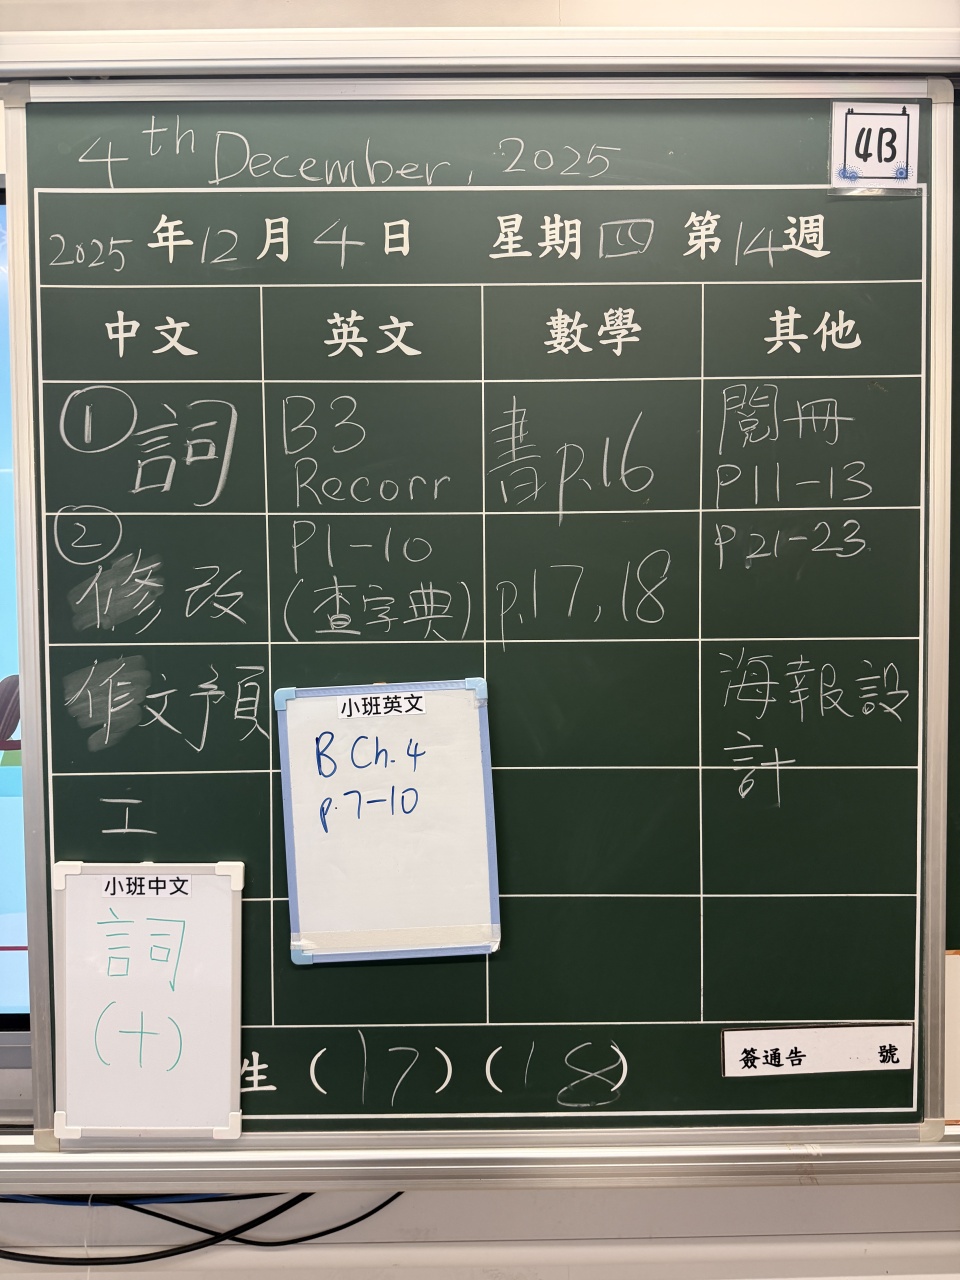 4th December, 2025
4B
2025年12月4日 星期四 第14週
中文
英文
數學
其他
① 詞
② 修改
作文預
工
B3
Recorr
P1-10
(查字典)
書p.16
p.17,18
閱冊
P11-13
P21-23
海報設
計
小班英文
B Ch.4
p.7-10
小班中文
詞
(十)
生(17)(18)
簽通告 號